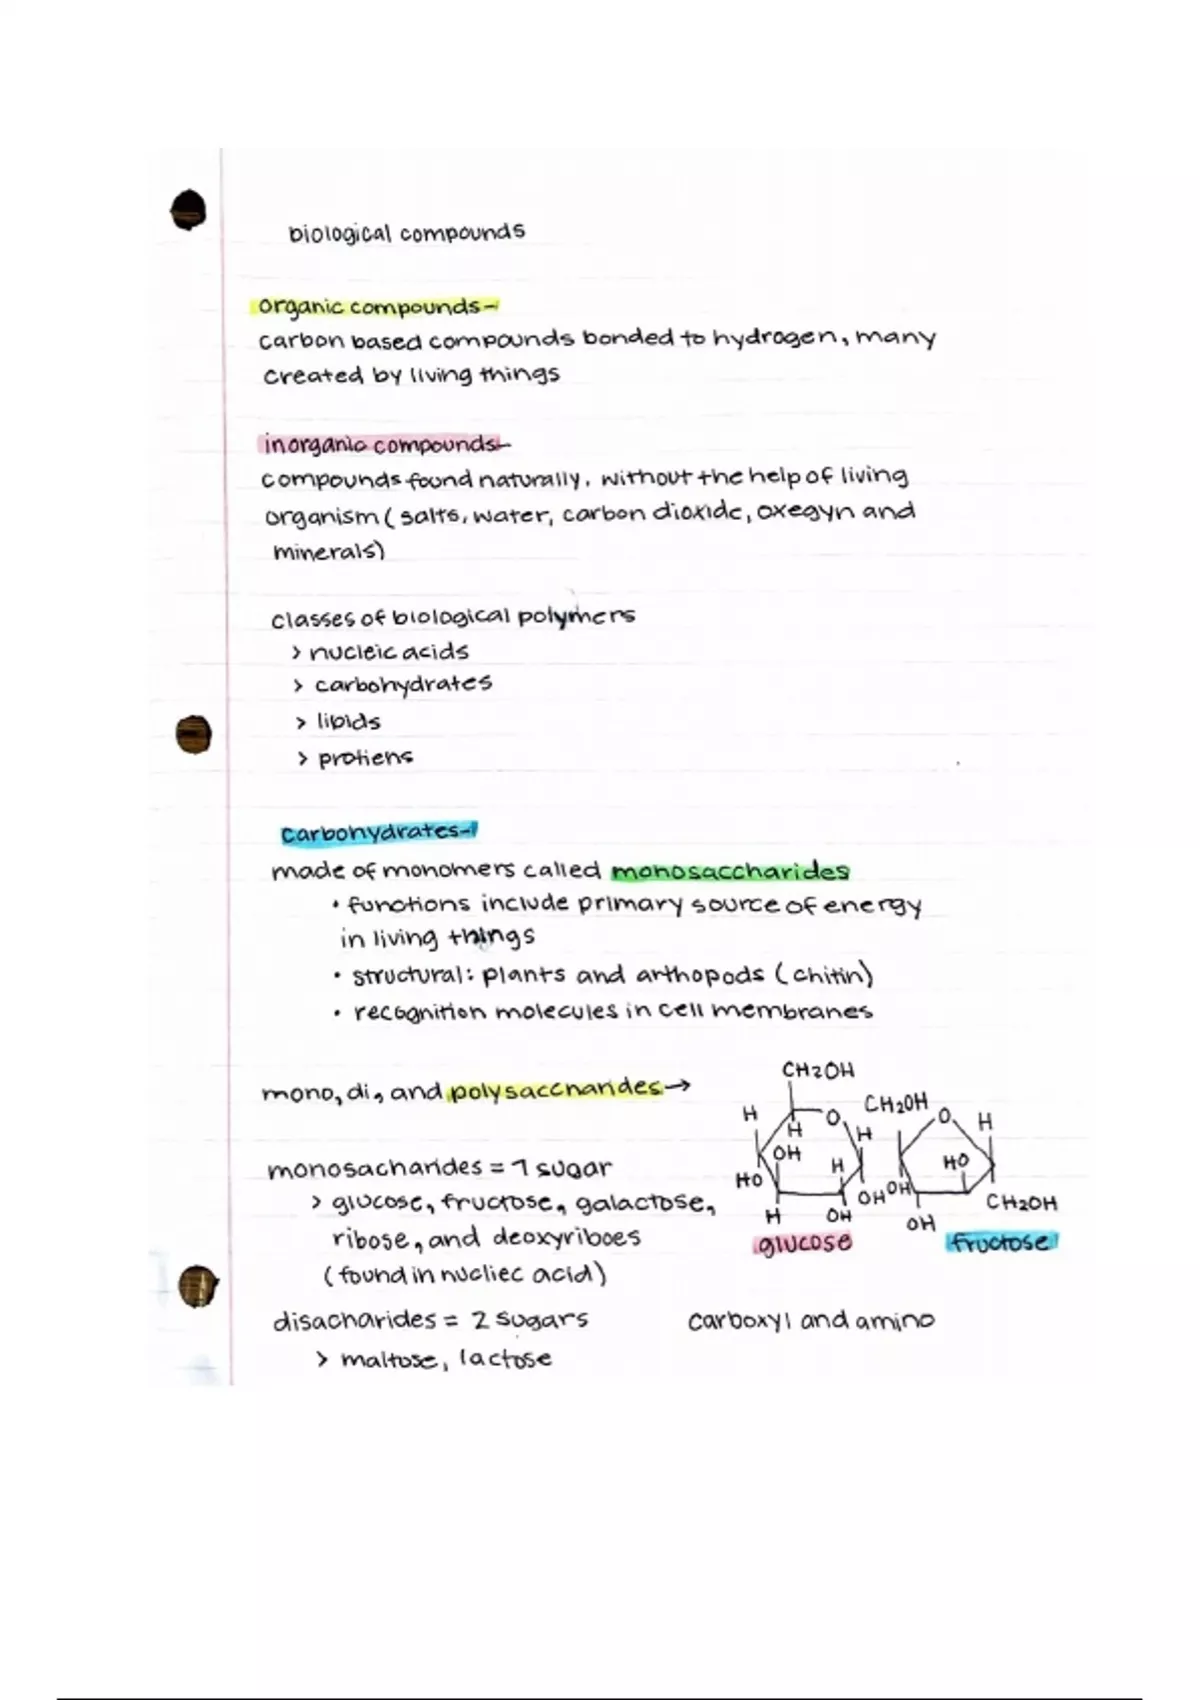 biological compounds
organic compounds-
carbon based compounds bonded to hydrogen, many
created by living things
inorganic compounds-
compounds found naturally, without the help of living
organism (salts, water, carbon dioxide, oxegyn and
minerals)
classes of biological polymers
> nucleic acids
> carbohydrates
> lipids
> protiens
carbohydrates-
made of monomers called monosaccharides
• functions include primary source of energy
in living things
• structural: plants and arthopods (chitin)
• recognition molecules in cell membranes
mono, di, and polysaccharides →
CH2OH
H O CH2OH O H
H H
OH H HO
HO OH OH CH2OH
H OH OH
glucose fructose
monosacharides = 1 sugar
> glucose, fructose, galactose,
ribose, and deoxyriboes
(found in nucliec acid)
disacharides = 2 sugars
carboxyl and amino
> maltose, lactose